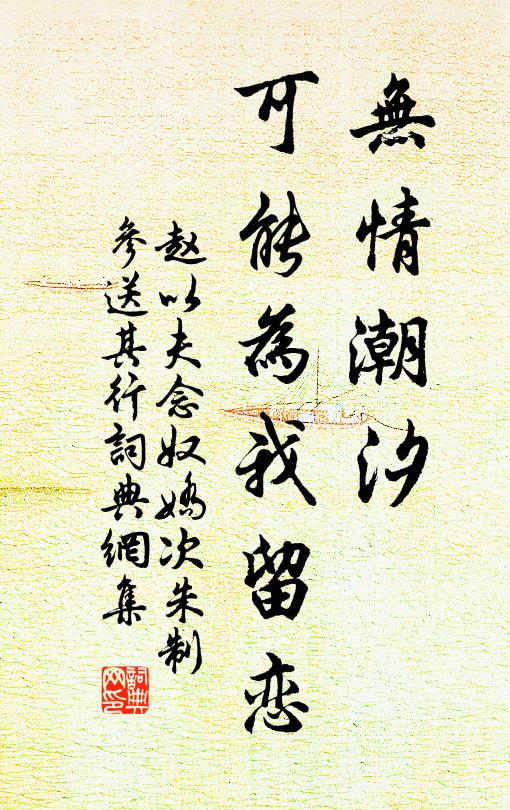 無情潮汐
可能為我留恋
赵以夫念奴嬌次朱制
參送其行詞典網集
詞典
网印